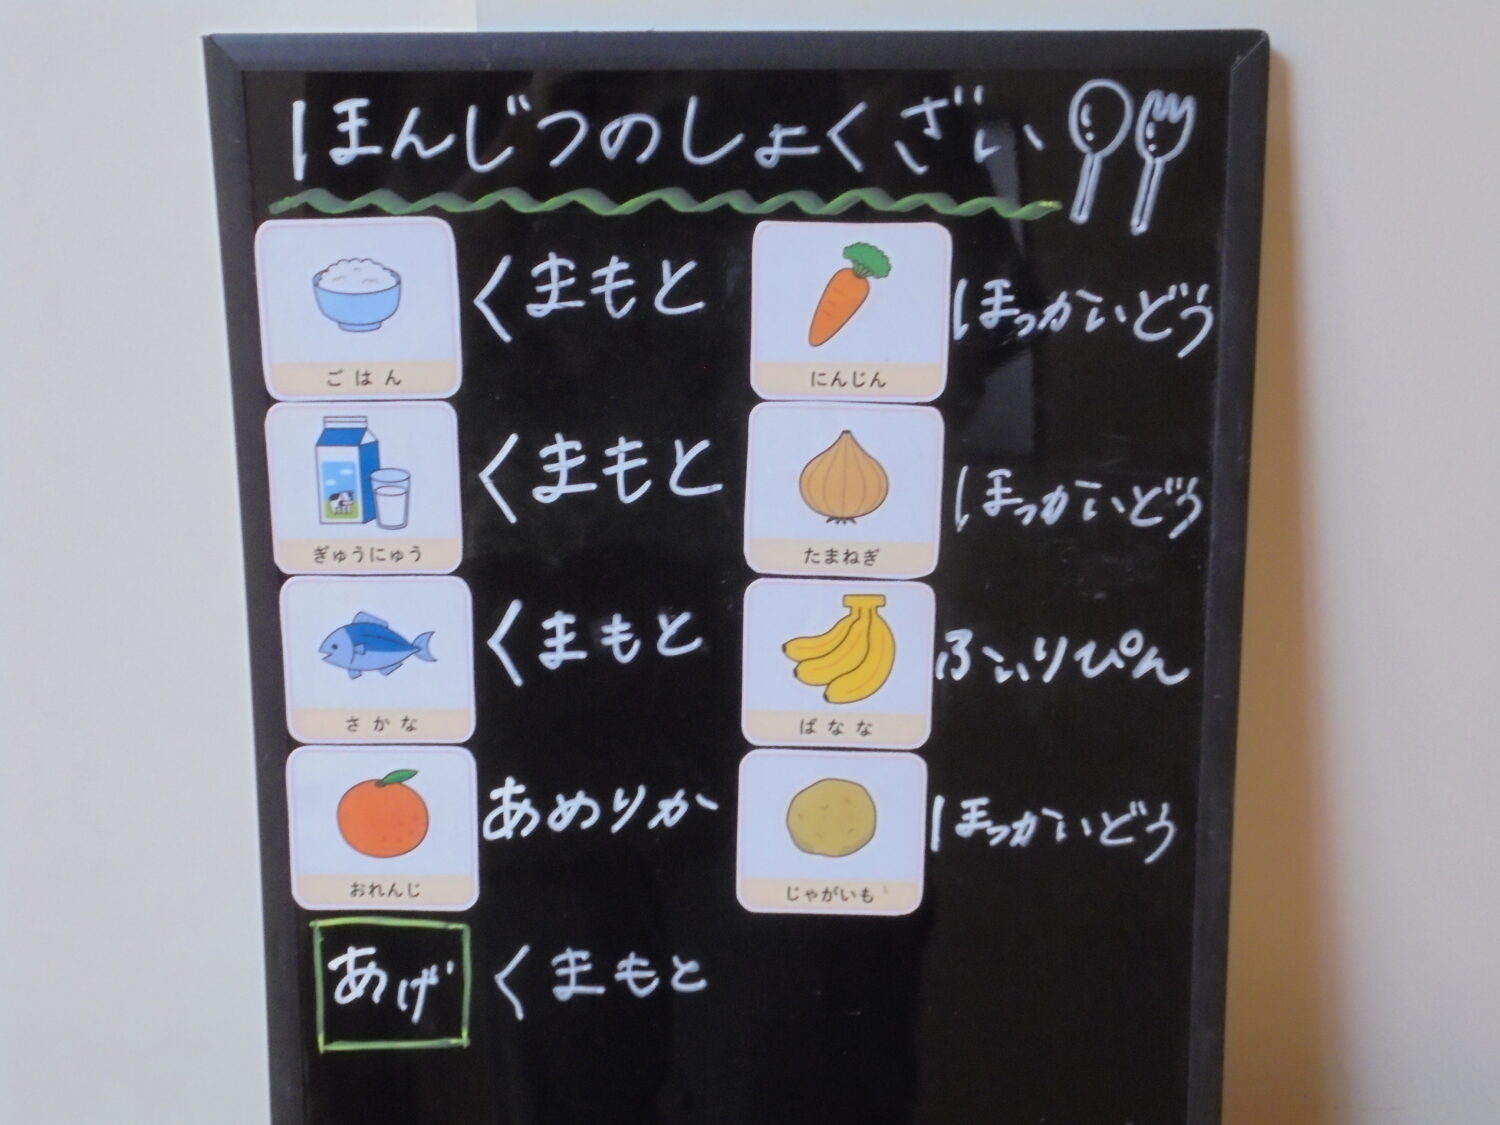 ほんじつのしょくざい
ごはん
くまもと
ぎゅうにゅう
くまもと
さかな
くまもと
おれんじ
あめりか
あげ
くまもと
にんじん
ほっかいどう
たまねぎ
ほっかいどう
ばなな
ふぃりぴん
じゃがいも
ほっかいどう